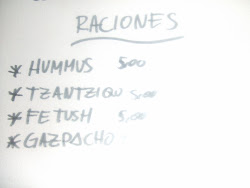 RACIONES
* HUMMUS 5,00
* TZANTZIQU 5,00
* FETUSH 5,00
* GAZPACHO